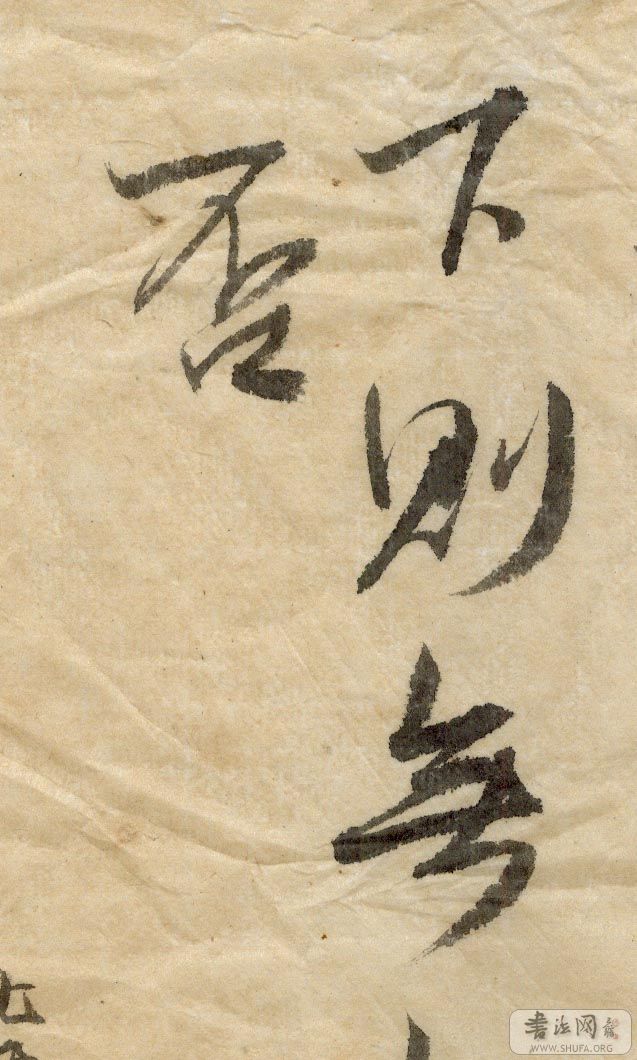 下則無
否
書法网
WWW.SHUFA.ORG